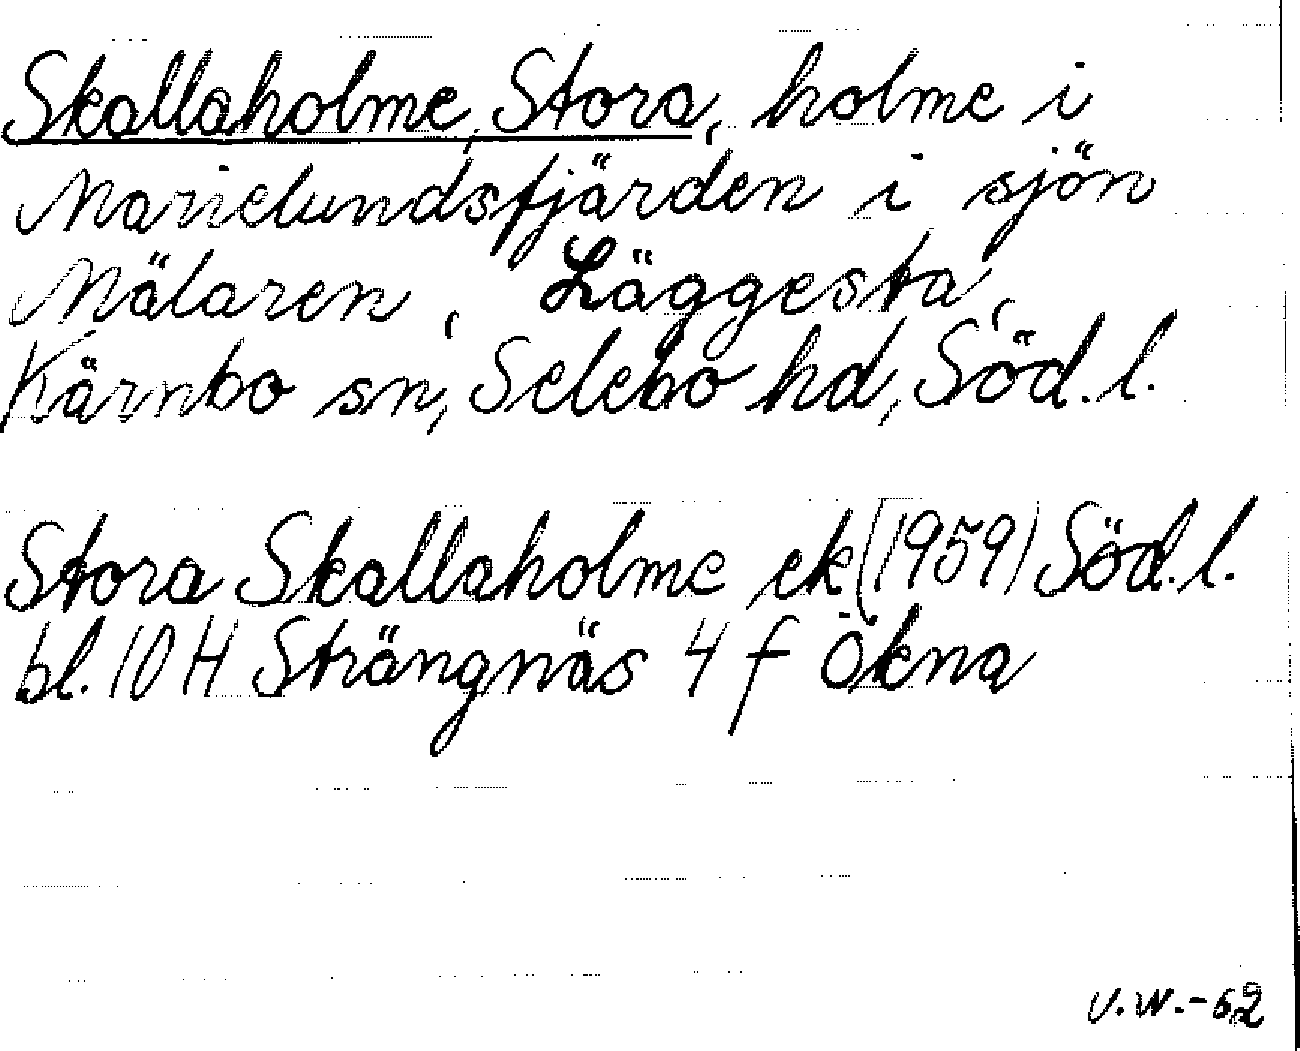 Skallaholme, Stora, holme i
Marielundsfjärden i sjön
Mälaren, Läggesta,
Kärnbo sn, Selebo hd, Söd.l.
Stora Skallaholme ek (1959) Söd.l.
bl. 10 H Strängnäs 4 f Ökna
V.W.-62